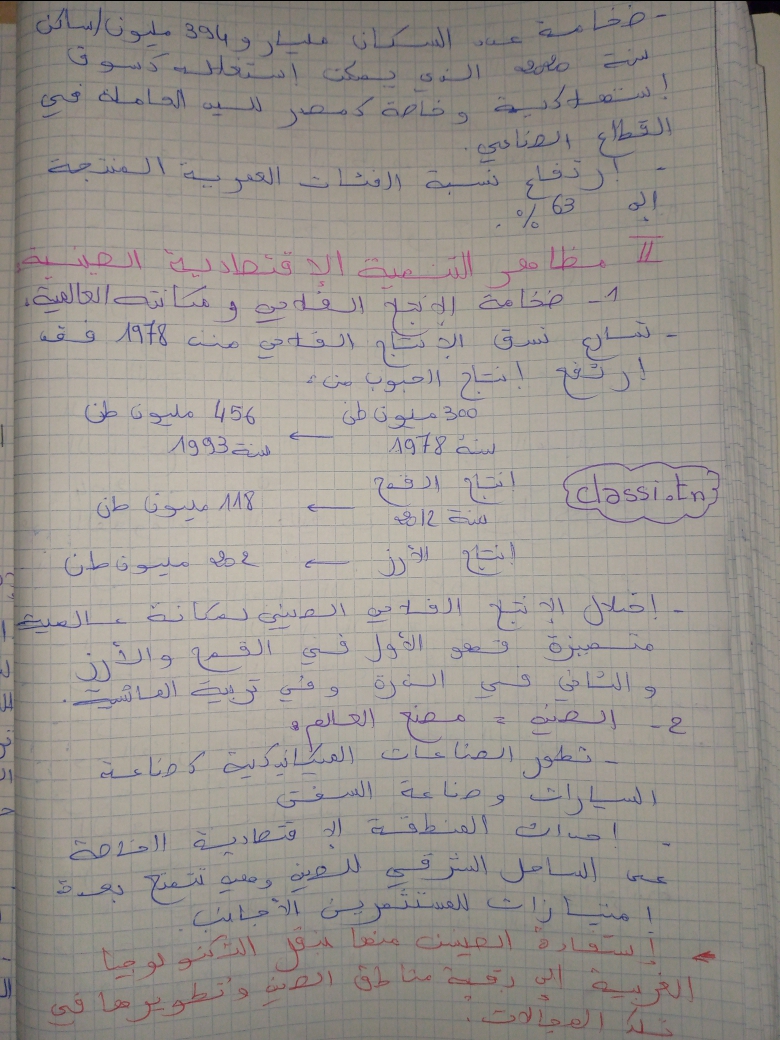 - ضخامة عدد السكان مليار و 394 مليون/ساكن
سنة 2020 الذي يمكن إستغلاله كسوق
إستهلاكية وخاصة كمصدر لليد العاملة في
القطاع الصناعي.
- إرتفاع نسبة الفئات العمرية المنتجة
إلى 63 %.
II مظاهر التنمية الإقتصادية الصينية.
1- ضخامة الإنتاج الفلاحي و مكانته العالمية.
- تسارع نسق الإنتاج الفلاحي منذ 1978 فقد
إرتفع إنتاج الحبوب من:
300 مليون طن ← 456 مليون طن
سنة 1978 سنة 1993
انتاج القمح ← 118 مليون طن
سنة 2012
classi.tn
إنتاج الأرز ← 202 مليون طن
- إحتلال الإنتاج الفلاحي الصيني لمكانة عالمية
متميزة فهو الأول في القمح والأرز
والثاني في الذرة وفي تربية الماشية.
2- الصين = مصنع العالم:
- تطور الصناعات الميكانيكية كصناعة
السيارات وصناعة السفن
- إحداث المنطقة الإقتصادية الخاصة
على الساحل الشرقي للصين وهي تتمتع بعدة
امتيازات للمستثمرين الأجانب.
← إستفادة الصين منها بنقل التكنولوجيا
الغربية إلى بقية مناطق الصين وتطويرها في
تلك المجالات.